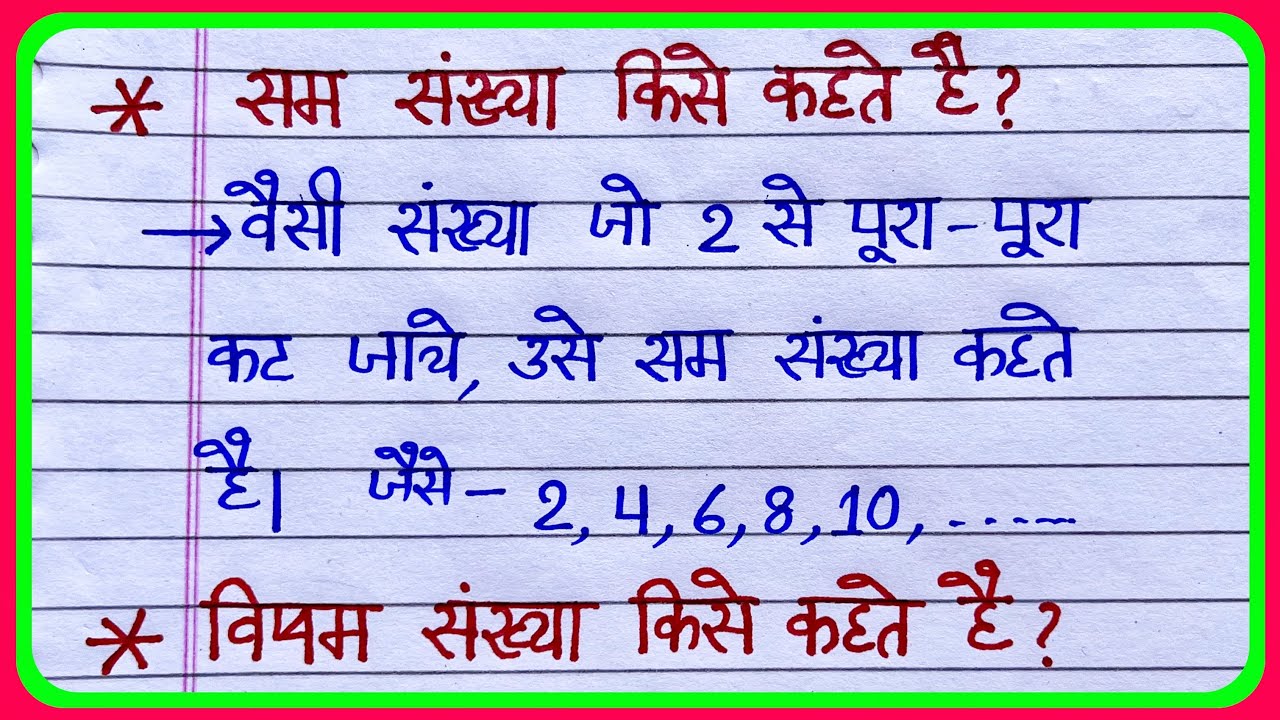 * सम संख्या किसे कहते है?
→वैसी संख्या जो 2 से पूरा-पूरा
कट जाये, उसे सम संख्या कहते
है। जैसे- 2, 4, 6, 8, 10, ......
* विषम संख्या किसे कहते है?